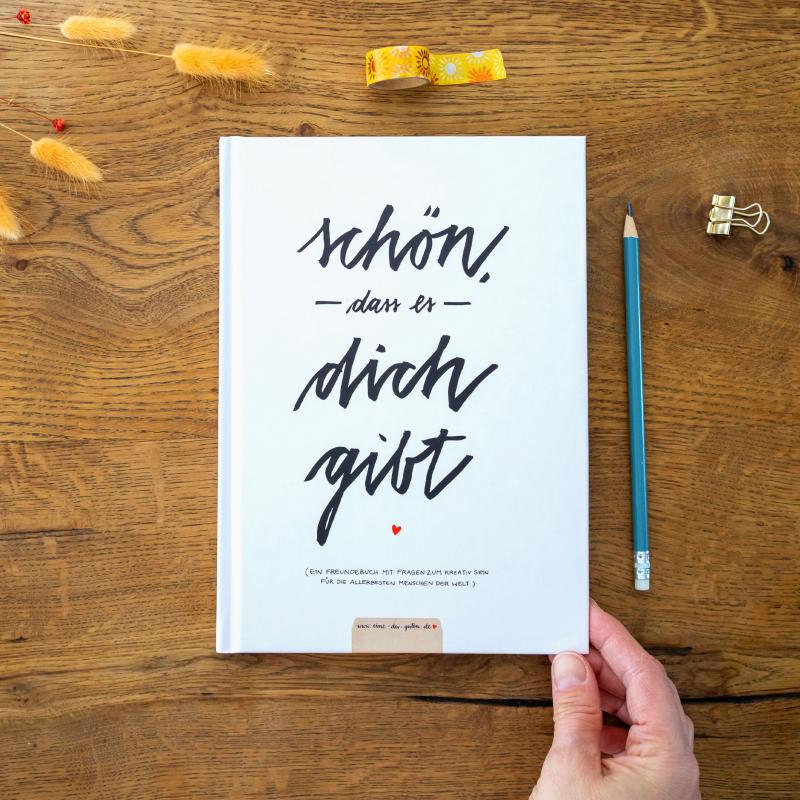 schön,
— dass es —
dich
gibt
(EIN FREUNDEBUCH MIT FRAGEN ZUM KREATIV SEIN
FÜR DIE ALLERBESTEN MENSCHEN DER WELT.)
www.eine-der-guten.de